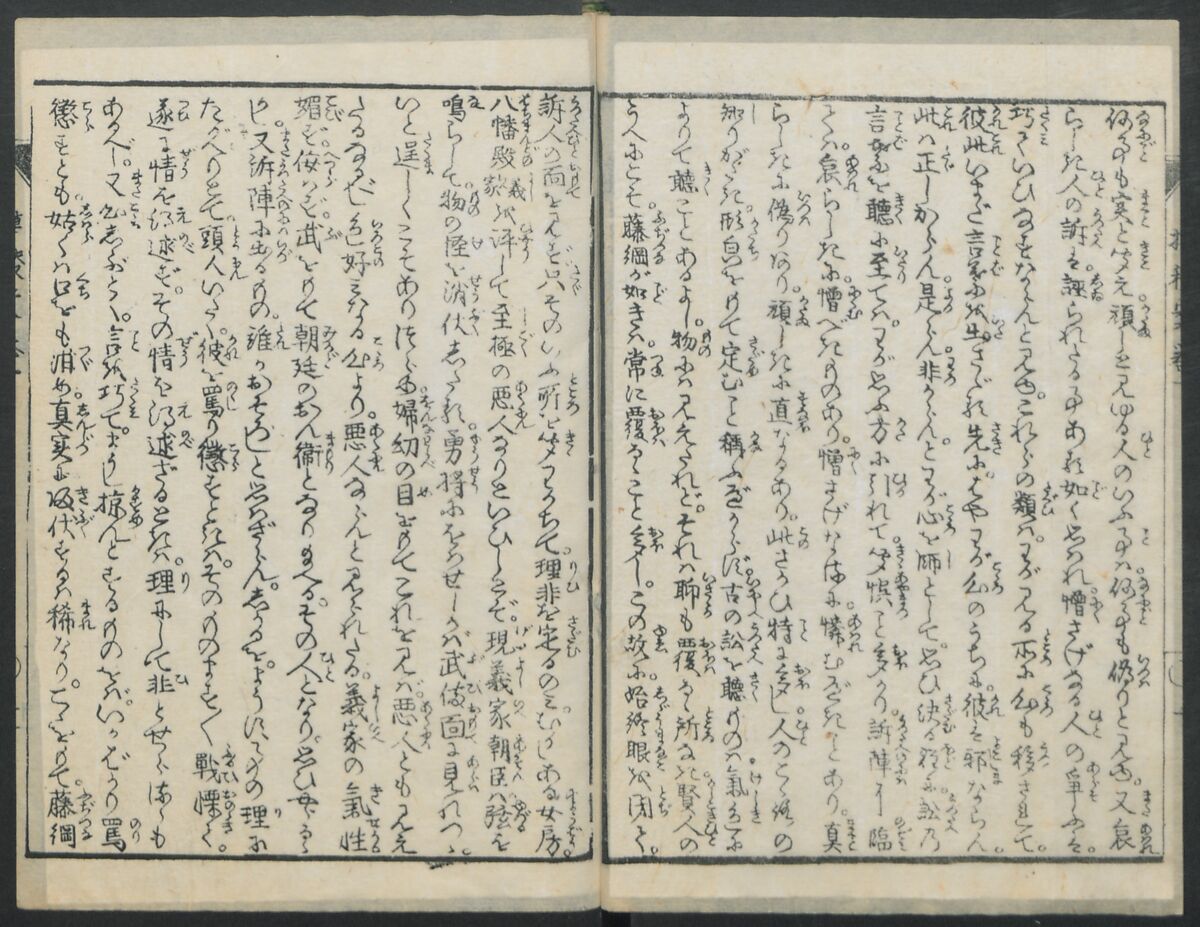 何事も実と聞え頑しを見ゆる人のいふ事は何事も偽りと見ゆ。又哀
らしき人の訴を誣られたる事ある如く思はれ憎さげなる人の争ふを
巧ていひなすならんと見ゆ。これらの類はわが見る所に心も移されて。
彼此いまだ言葉を出さゞる先に。はやわが心のうちに彼は邪ならん
此は正しからん是ならん非ならんとわが心を師として。思ひ決る程に訟の
言葉を聴に至てはわが思ふ方に引れて聞誤こと多かり。訴陣に臨
ては哀らしきに憎べきものあり。憎さげなるに憐むべきことあり。真
らしきに偽りあり。頑しきに直なるあり。此たぐひ特に多し人のこゝろの
知りがたき形貌をもて定むこと称ふべからず。古の訟を聴ものは氣色に
よりて聴ことあるよし。物には見えたれどそれは聊も覆る所なき賢人の
うへにこそ。藤綱が如きは常に覆ること多し。この故に始終眼を閉て。
訴人の面を見ず只そのいふ所を聞わかちて。理非を定るのみむかしある女房。
八幡殿義家を評して至極の悪人なりといひしとぞ。現義家朝臣は弦を
鳴らして物の怪を消伏したる勇将におはせしかば武備面に見れつゝ
いと逞しくこそありけめ婦幼の目をもてこれを見ば。悪人とも見え
たるなるべし色好みなる心より。悪人ならんと見られたる。義家の氣性
媚ず佞はず。武をもて朝廷のおん衛となりのへるその人となり思ひやるべ
し。又訴陣に出るもの。誰かおそろしと思はざらん。しかるを。ようせずはその理に
たがへりとて頭人いたく彼を罵り懲すときは。そのものますます戦慄て。
遂に情を得述ず。その情を得述ざるときは。理にして非とせらるゝも
あるべし。又心志ぶとく言を巧て。かすめ掠んとするものをば。いかばかり罵
懲すとも姑くは口をも閉め真実に皈伏するは稀なり。こゝをもて藤綱